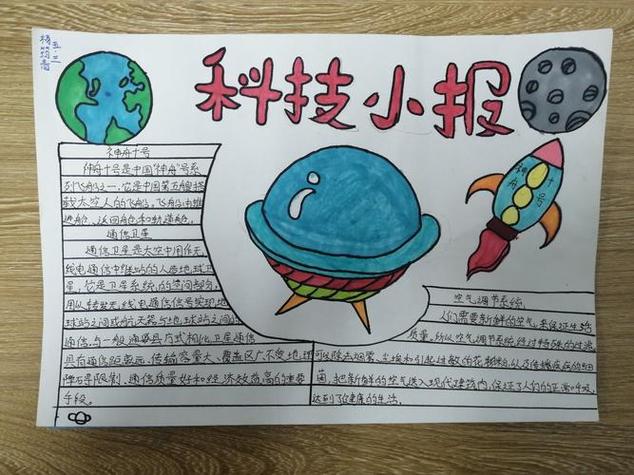 五.三
科技小报
神舟十号
神舟十号是中国"神舟"号系
列飞船之一,它是中国第五艘搭
载太空人的飞船。飞船由推
进舱、返回舱和轨道舱。
通信卫星
通信卫星是太空中用作无
线电通信中继站的人造地球卫
星,它是卫星系统的空间部分,
用以转发无线电通信信号实现地
球站之间或航天器与地球站之间的
通信,与一般通信方式相比,卫星通信
具有通信距离远、传输容量大、覆盖区广、不受地理
障碍限制、通信质量好和经济效益高的重要
手段。
神舟十号
空气调节系统
人们需要新鲜的空气来保证生活
质量,所以空气调节系统经过特殊的过滤
可以除去烟雾、尘埃和引起过敏的花粉,以及传播疾病的细
菌,把新鲜的空气送入现代建筑内,保证了人们的正常呼吸,
达到了健康的生活。